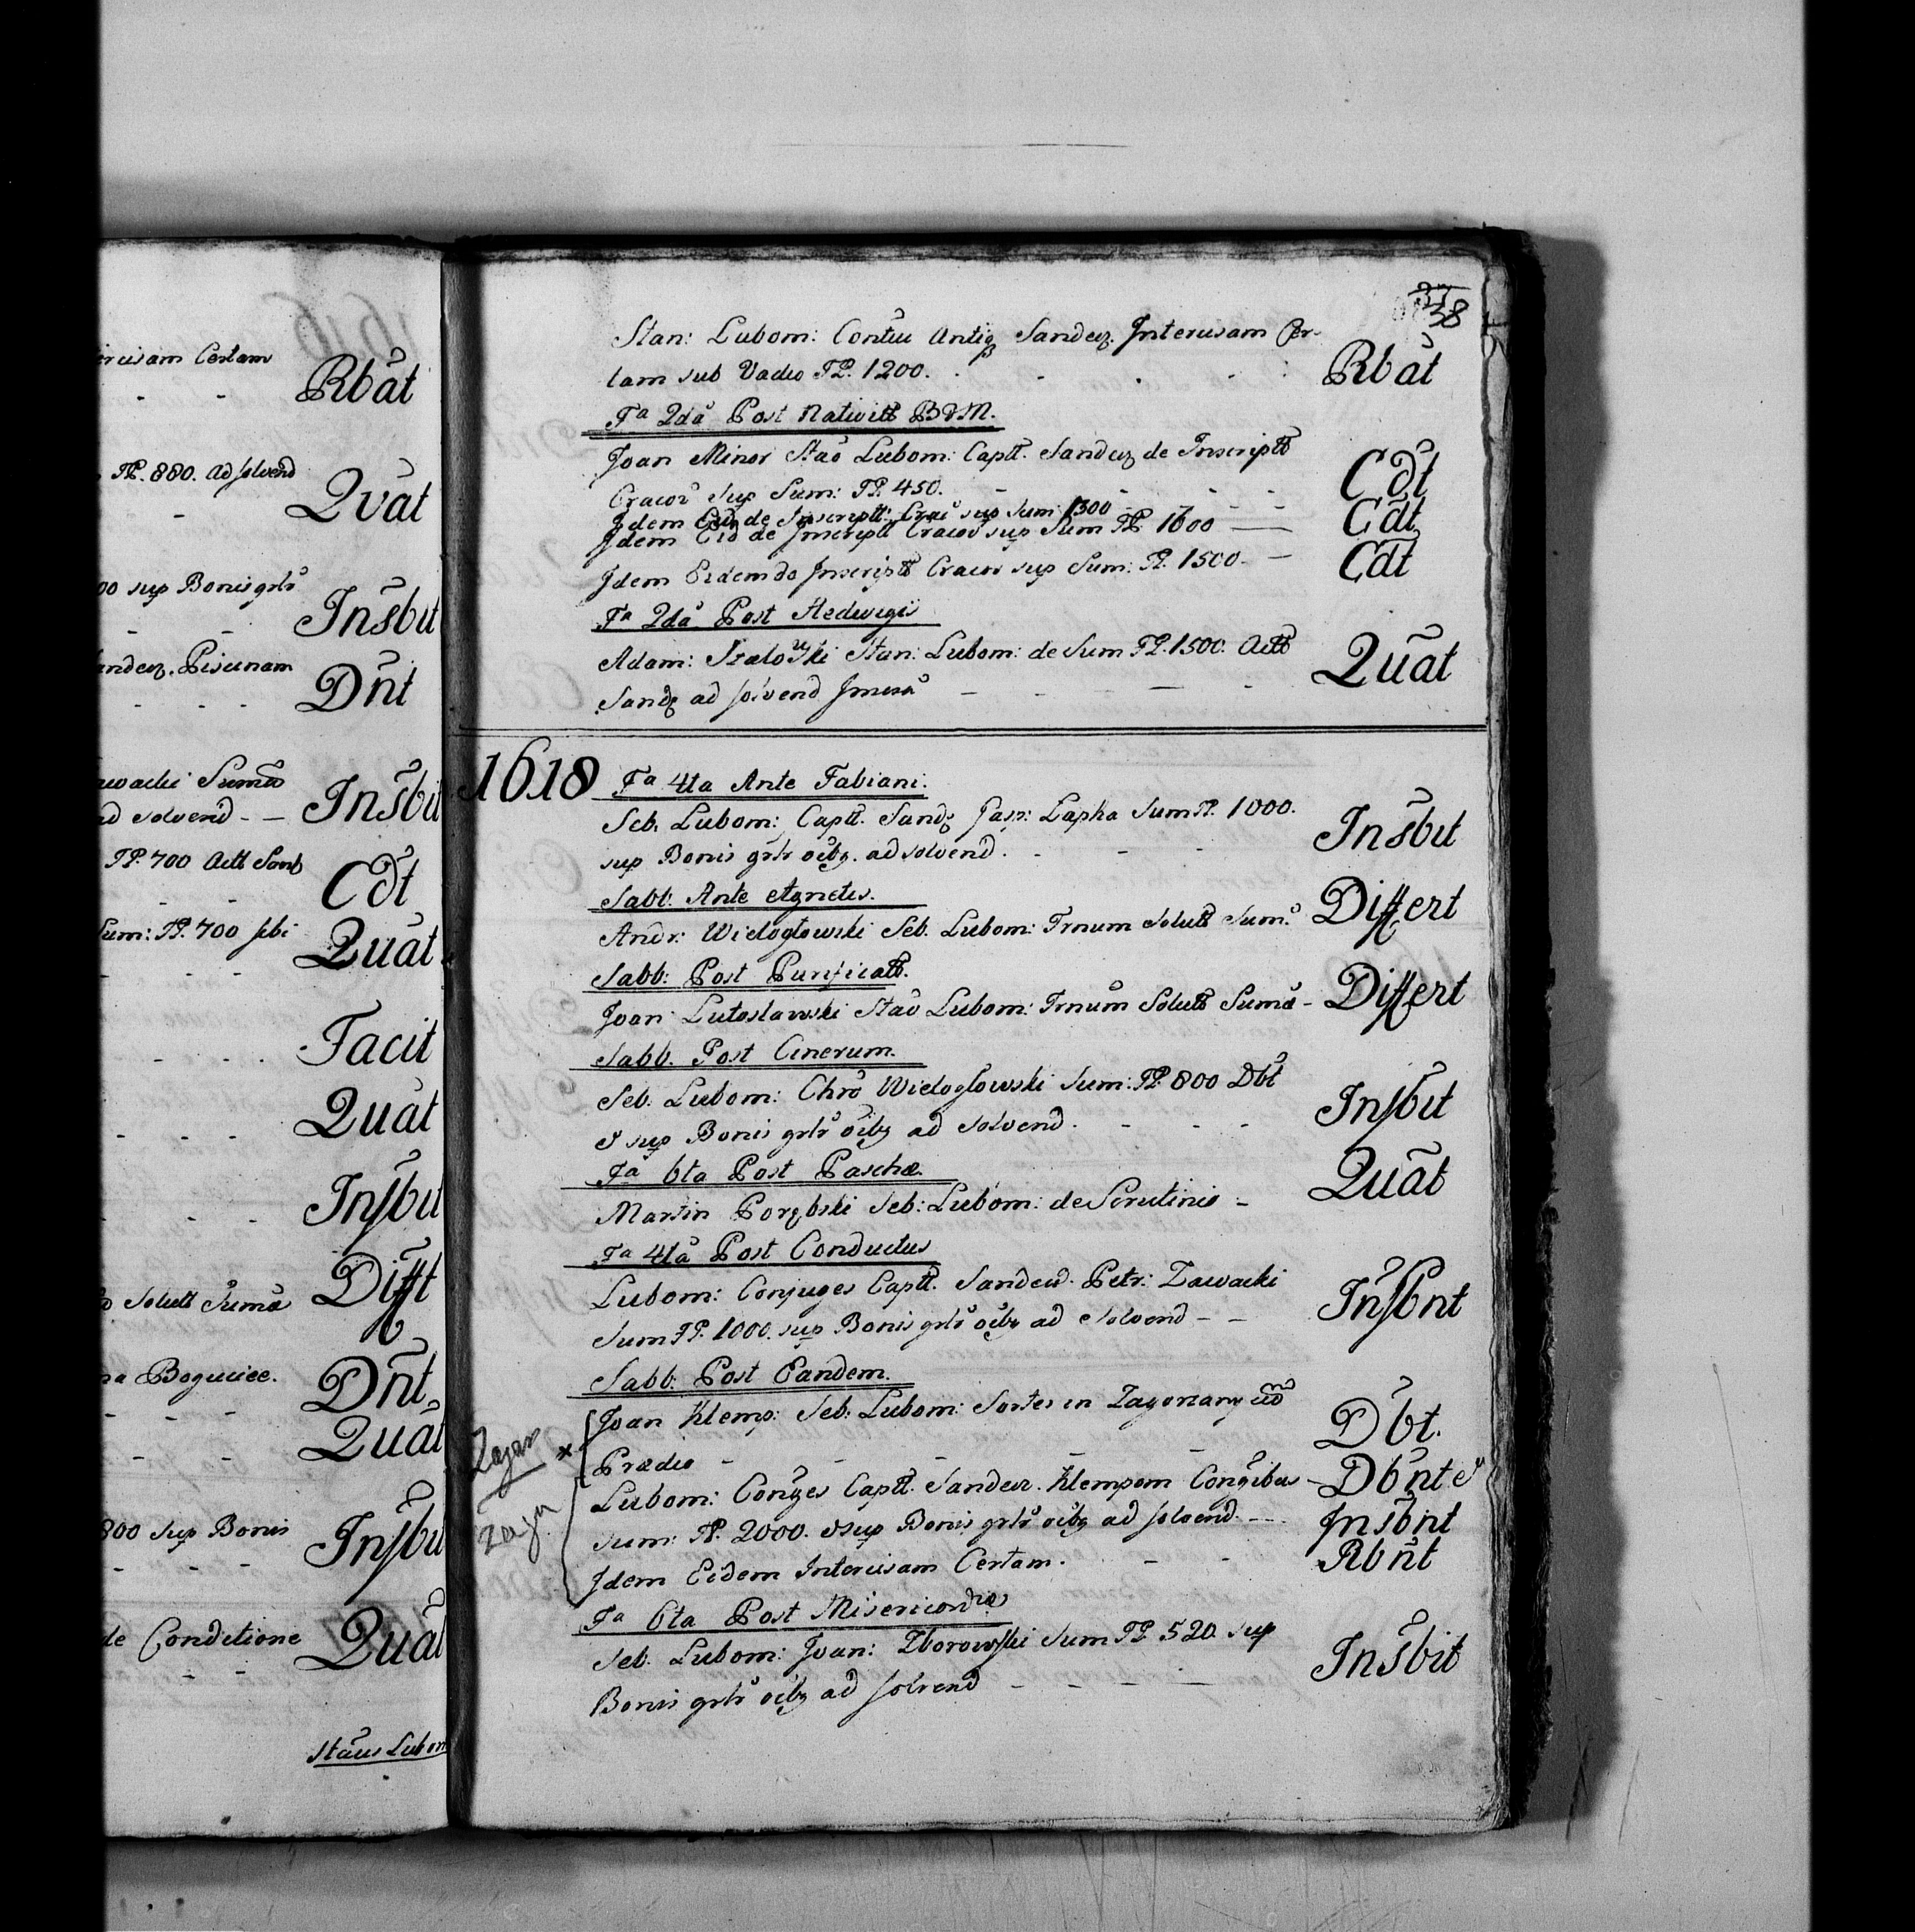 ercisam Certam
Rbãt
TP. 880. ad solvend
Qvãt
00 sup Bonis grlr
Insbit
andez. Piscinam
Dñt
awacki Suma
ad solvend - -
Insbit
TP. 700 Actt Sand
Cdt
Sum: TP. 700 sibi
Quãt
Facit
Quãt
Insbit
Difft
Solutt Suma
na Bogucice.
Dñt
Quãt
800 sup Bonis
Insbit
de Conditione
Quãt
Stãus Lubom
37
38
Stan: Lubom: Antiq Sandez. Intercisam Cer-
tam sub Vadio TP. 1200.
Rbãt
Fa 2da Post Nativitt BVM.
Joan Minor Stao Lubom: Captt. Sandez de Inscriptt
Cracov sup Sum: TP. 450.
Cdt
Idem Eid de Inscriptt Crac sup Sum 1300
Idem Eid de Inscriptt Cracov sup Sum TP. 1600
Cdt
Idem Eidem de Inscriptt Cracov sup Sum: TP. 1500.
Cdt
Fa 2da Post Hedwigis
Adam: Stan: Lubom: de Sum TP. 1500. Actt
Sandz ad solvend
Quãt
1618
Fa 4ta Ante Fabiani.
Seb. Lubom: Captt. Sandz Gasp: Lapka Sum TP. 1000.
sup Bonis grlr oibg. ad solvend.
Insbit
Sabb: Ante Agnetis.
Andr: Wieloglowski Seb. Lubom: Trnum Solutt Sum.
Differt
Sabb: Post Purificatt.
Joan Lutoslawski Stao Lubom: Trnum Solutt Suma -
Differt
Sabb. Post Cinerum.
Seb. Lubom: Chro Wieloglowski Sum: TP. 800 Dbt
& sup Bonis grlr oibg ad solvend.
Insbit
Fa 6ta Post Paschæ.
Martin Porębski Seb: Lubom: de Scrutinio -
Quãt
Fa 4ta Post Conductus
Lubom: Conjuges Captt. Sandew. Petr: Zawacki
Sum TP. 1000. sup Bonis grlr oibg ad solvend - -
Insbnt
Sabb: Post Eandem.
Joan Klemp: Seb: Lubom: Sortes in Zagorzany cũ
Prædio
Dbt.
Lubom: Conges Captt. Sandez. Klempom Congibus -
Dbnt &
Sum: TP. 2000. & sup Bonis grlr oibg ad solvend.
Insbnt
Idem Eidem Intercisam Certam.
Rbñt
Fa 6ta Post Misericordiæ
Seb. Lubom: Joan: Zborowski Sum TP. 520. sup
Bonis grlr oibg ad solvend
Insbit